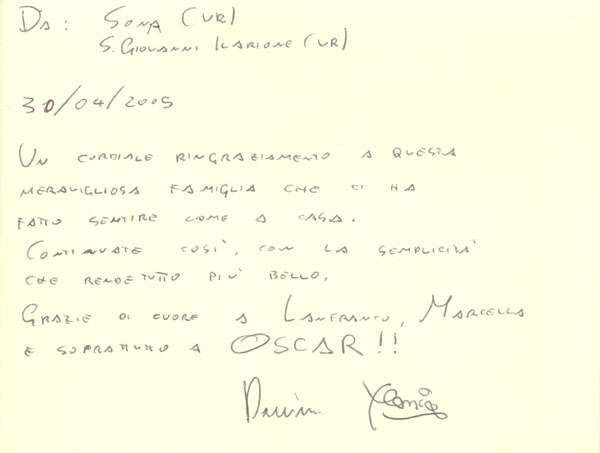 DA: SONA (VR)
S. GIOVANNI ILARIONE (VR)
30/04/2005
UN CORDIALE RINGRAZIAMENTO A QUESTA
MERAVIGLIOSA FAMIGLIA CHE CI HA
FATTO SENTIRE COME A CASA.
CONTINUATE COSÌ, CON LA SEMPLICITÀ
CHE RENDE TUTTO PIÙ BELLO.
GRAZIE DI CUORE A LANFRANCO, MARCELLA
E SOPRATTUTTO A OSCAR!!